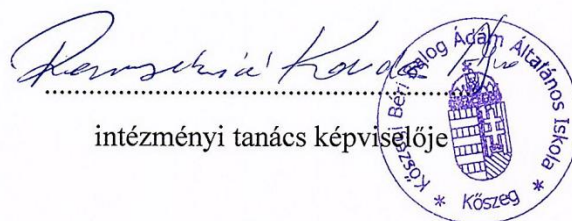 intézményi tanács képviselője
Kőszegi Béri Balog Ádám Általános Iskola
* Kőszeg *